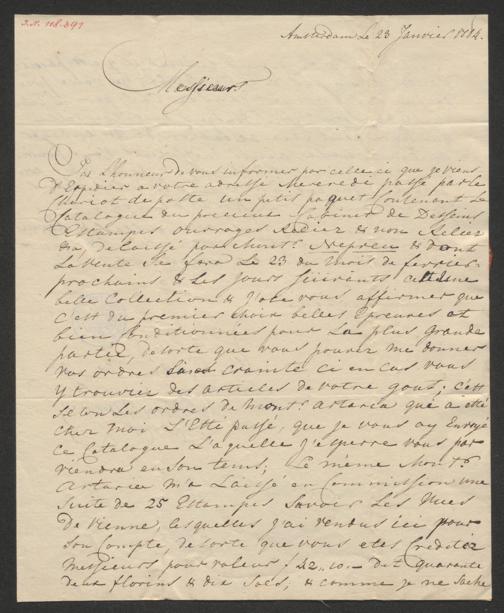 I.N. 118.391
Amsterdam Le 23 Janvier 1784.
Messieurs
J'ai L'honneur de vous informer par celle ci que je viens
D'Expédier a votre adresse Mecredi passé par le
Chariot de poste un petit paquet Contenant Le
Catalogue du precieux Cabinet de Dessins
Estampes ouvrages Reliez & non Reliez
delaissé par Mons.r Nepveu & dont
La vente se fera Le 23 du Mois de fevrier
prochains & Les Jours suivants c'est une
belle Collection & J'ose vous affirmer que
C'est du premier Choix belles Epreuves et
bien Conditionnées pour La plus grande
partie, desorte que vous pouvez me donner
vos ordres Sans crainte ci en cas vous
y trouviez des articles de votre gout; c'est
selon Les ordres de Mons.r Artaria que a eté
chez Moi L'Eté passé, que je vous ay Envoyé
ce Catalogue L'aquelle J'esperre vous par
viendra en son tems; Le même Mons.r
Artaria m'a Laissé en Commission une
Suite de 25 Estampes savoir Les Vues
De Vienne, lesquelles J'ai vendus ici pour
son Compte, desorte que vous etes Creditez
Messieurs pour valeur f 42.10.- Dit quarante
deux florins & dix Sols, & comme je ne sache